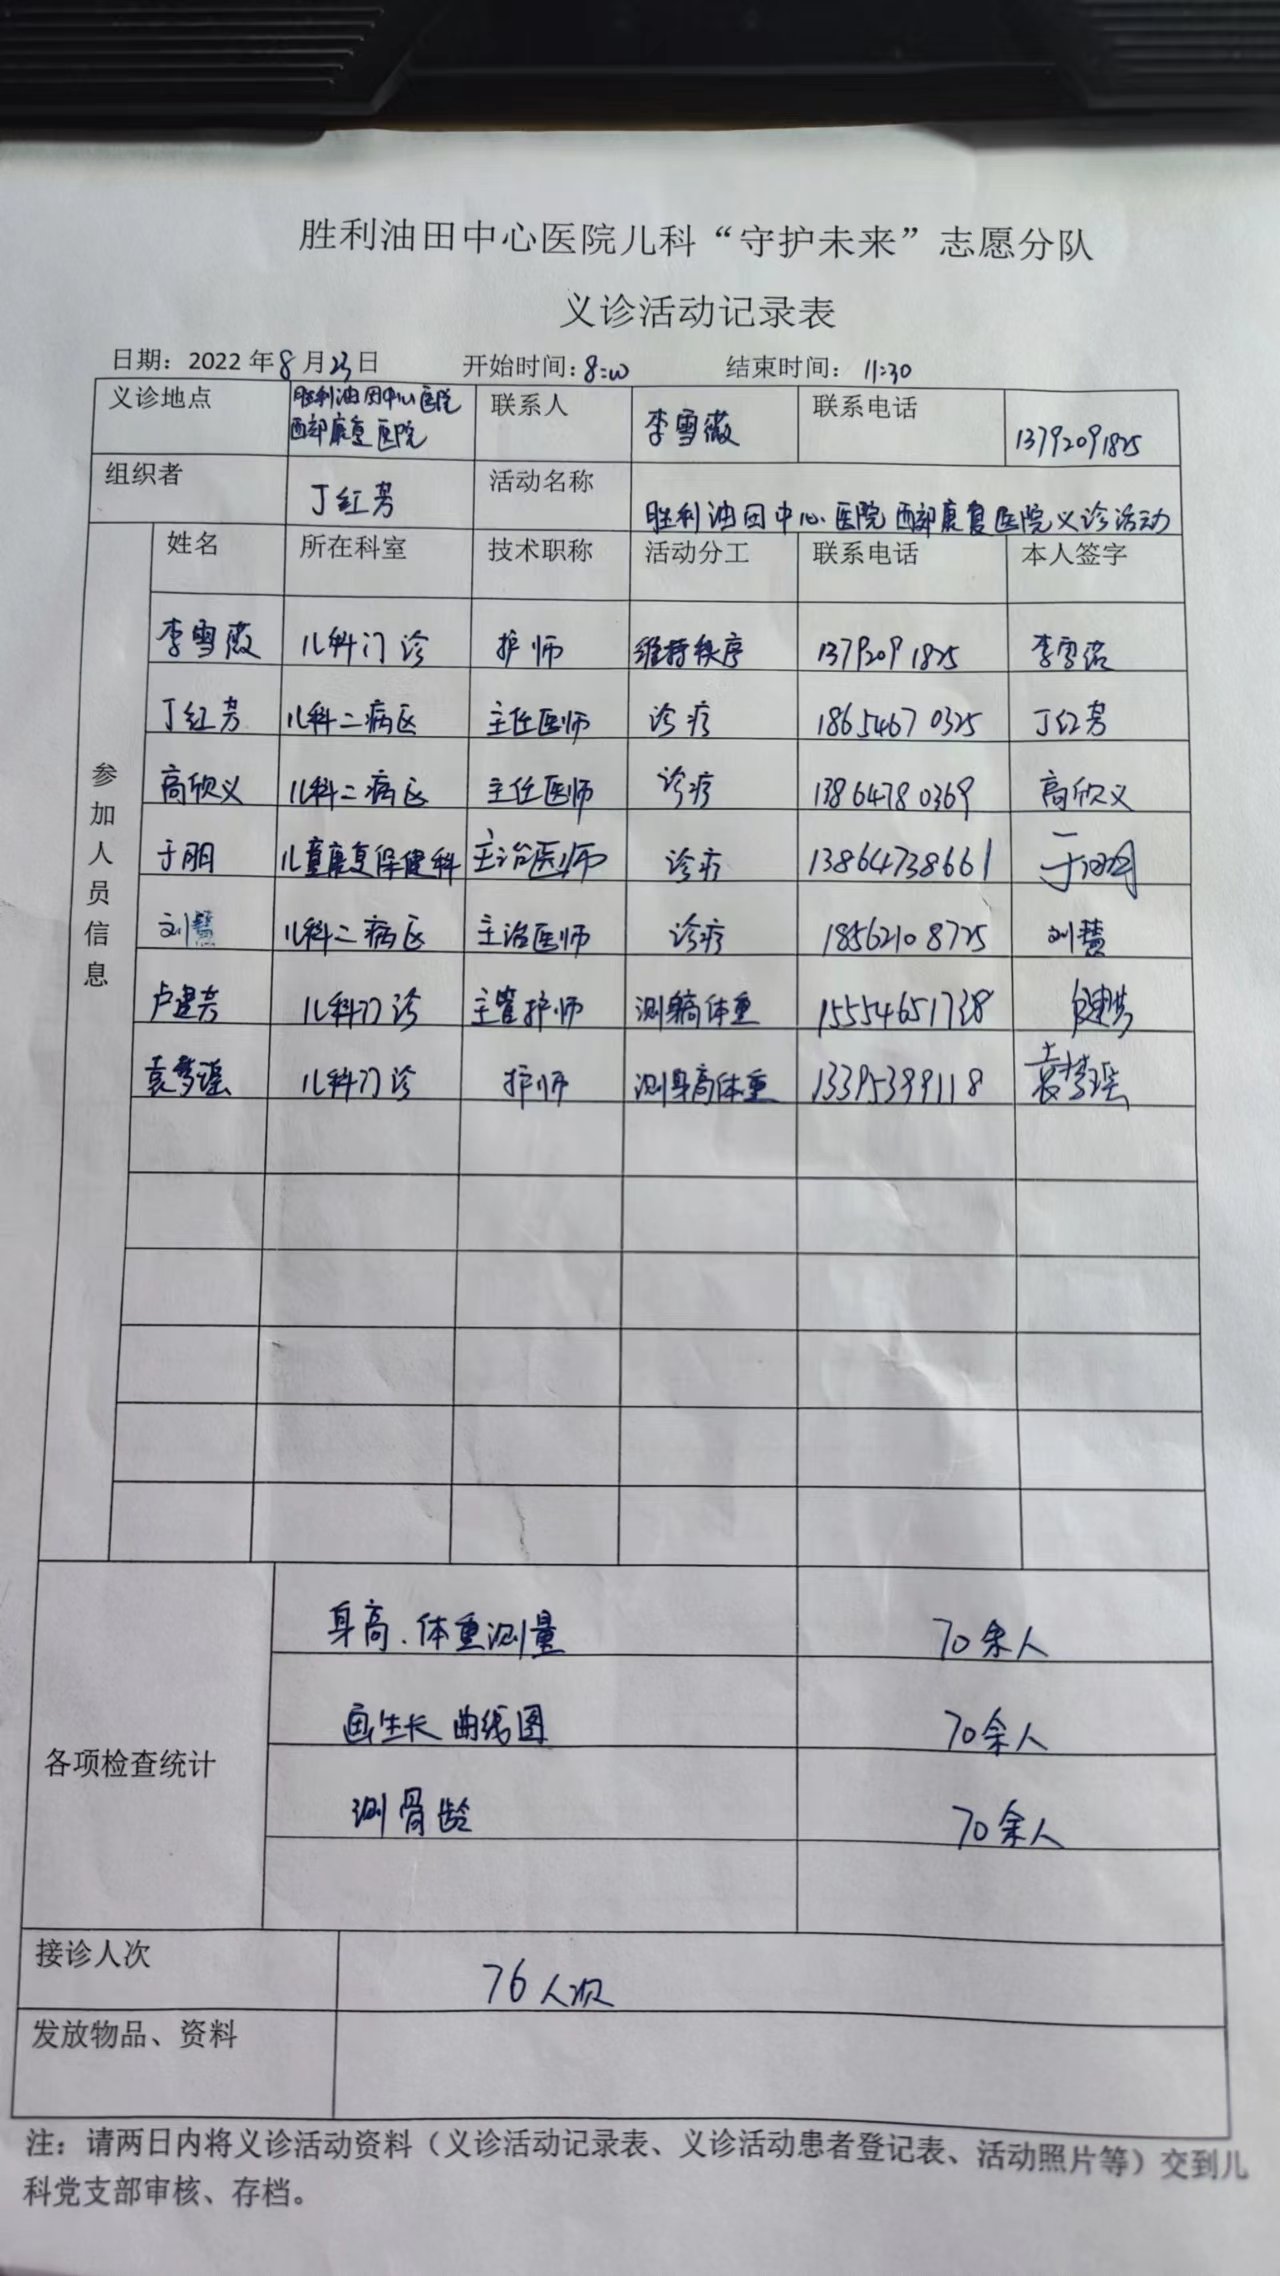 胜利油田中心医院儿科“守护未来”志愿分队
义诊活动记录表
日期：2022年8月23日 开始时间：8:00 结束时间： 11:30
义诊地点 胜利油田中心医院西部康复医院 联系人 李雪薇 联系电话 13792091825
组织者 丁红芳 活动名称 胜利油田中心医院西部康复医院义诊活动
参加人员信息
姓名 所在科室 技术职称 活动分工 联系电话 本人签字
李雪薇 儿科门诊 护师 维持秩序 13792091825 李雪薇
丁红芳 儿科二病区 主任医师 诊疗 18654670325 丁红芳
高欣义 儿科二病区 主任医师 诊疗 13864780369 高欣义
于明 儿童康复保健科 主治医师 诊疗 13864738661
刘慧 儿科二病区 主治医师 诊疗 18562108725 刘慧
卢建芳 儿科门诊 主管护师 测身高体重 15554651728
袁梦瑶 儿科门诊 护师 测身高体重 13395399118 袁梦瑶
各项检查统计
身高、体重测量 70余人
画生长曲线图 70余人
测骨龄 70余人
接诊人次 76人次
发放物品、资料
注：请两日内将义诊活动资料（义诊活动记录表、义诊活动患者登记表、活动照片等）交到儿
科党支部审核、存档。